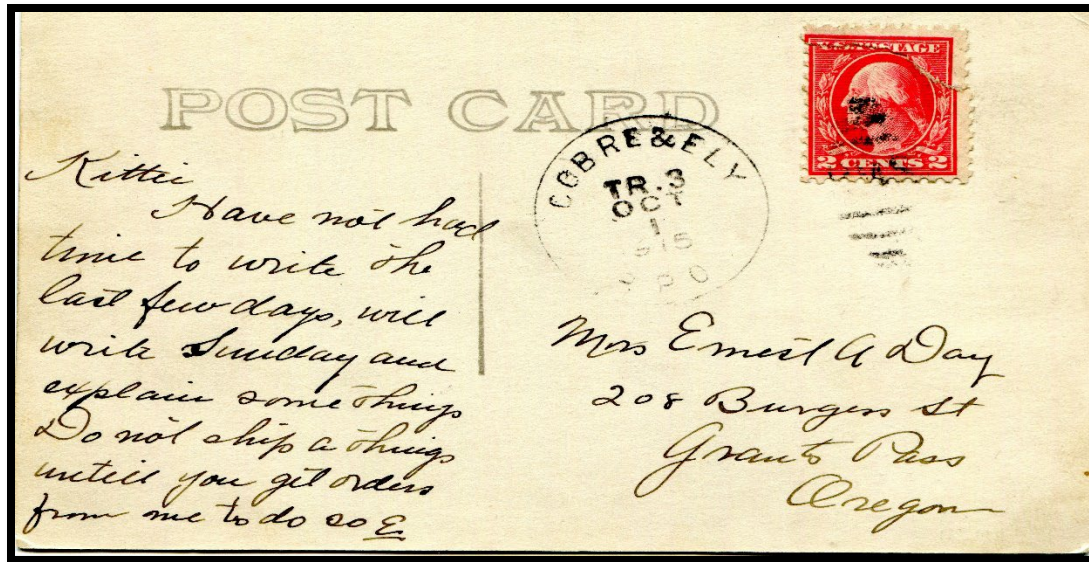 POST CARD
U.S. POSTAGE
2 CENTS 2
COBRE & ELY
TR. 3
OCT
1
915
R P O
Kittie
Have not had
time to write the
last few days, will
write Sunday and
explain some things
Do not ship a things
untill you get orders
from me to do so E
Mrs Ernest A Day
208 Burgess St
Grants Pass
Oregon